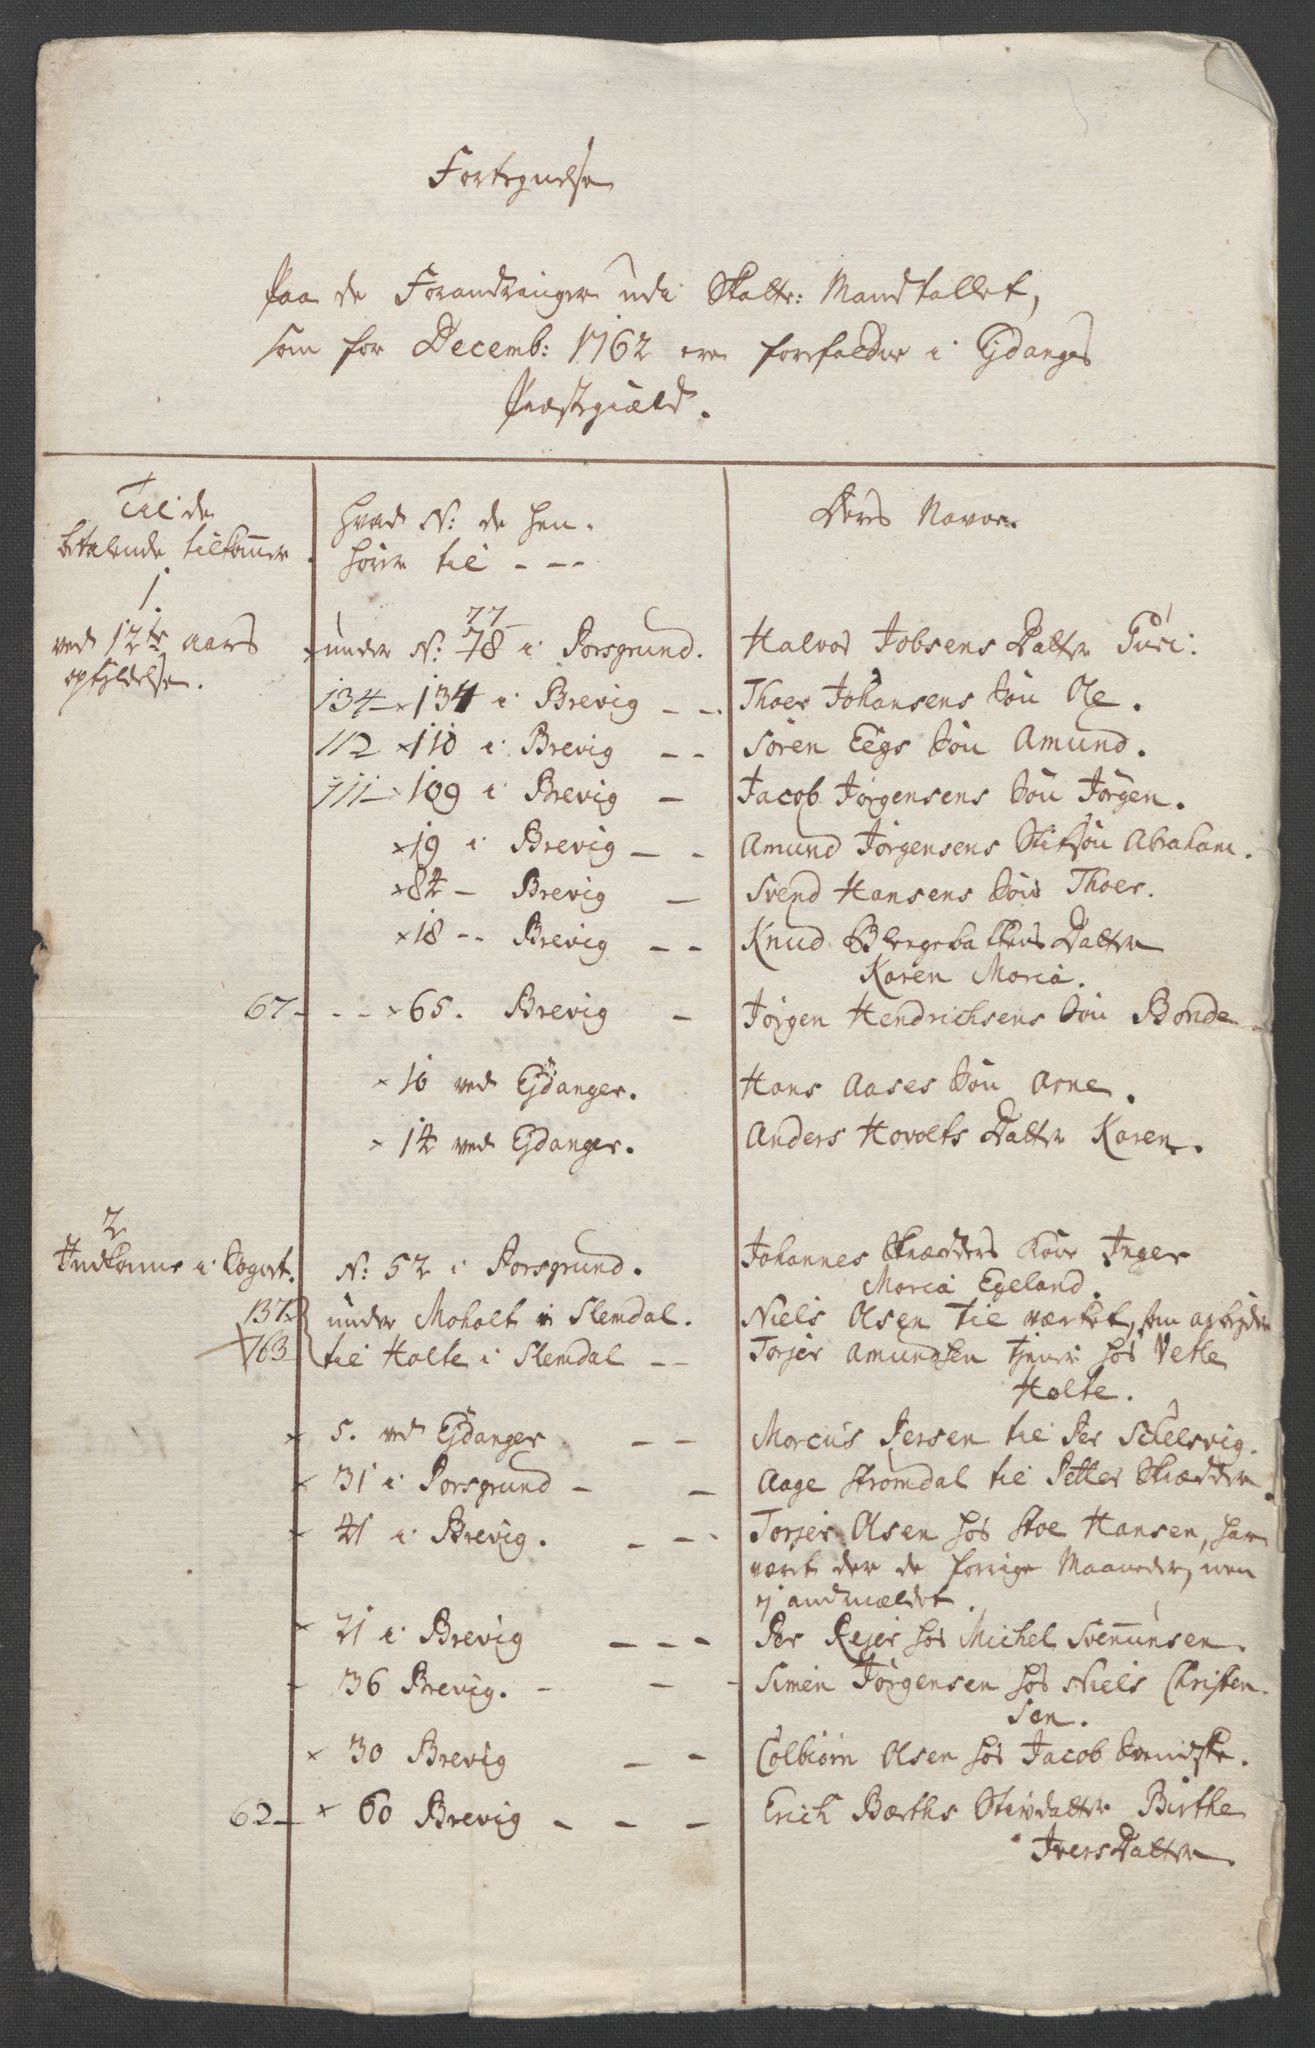 Fortegnelse
Paa de Forandringer udi Skatte: Mandtallet,
som for Decemb: 1762 ere forefaldne i Ejdangers
Præstegield.
Til de
betalende tilkommer
Hvad N: de hen-
hører til - - -
Deres Navne.
1.
77
ved 12te Aars
under N: 78 i Porsgrund.
Halvor Jobsens Datter Guri:
opfyldelse.
134 - × 134 i Brevig - -
Thoer Johansens Søn Ole.
112 × 110 i Brevig - -
Sören Eegs Søn Amund.
111 - × 109 i Brevig -
Jacob Jørgensens Søn Jørgen.
× 19 i Brevig - -
Amund Jørgensens Stifsøn Abraham.
× 82 - Brevig -
Svend Hansens Søn Thoer.
× 18 - - Brevig - -
Knud Datter
Karen Maria.
67 - - - × 65. Brevig -
Jørgen Hendrichsens Søn Bonde
× 10 ved Ejdanger.
Hans Aases Søn Arne.
× 14 ved Ejdanger.
Anders Hovolts Datter Karen.
2
Indkomne i Sognet.
N: 52 i Porsgrund.
Johannes Skræders Kone Inger
Maria Egeland.
137
under Moholt i Slemdal.
Niels Olsen til værket, som arbejder
163
til Holte i Slemdal - -
Torjer Amundsen tjener hos Vetle
Holte.
× 5. ved Ejdanger - -
Marcus Persen til Per Schelsvig.
× 31 i Porsgrund - -
Aage Strømdal til Petter Skræder.
× 41 i Brevig. - - -
Torjer Olsen hos Hansen, har
været der de forrige Maaneder, men
ej andmældet.
× 21 i Brevig - - -
Per Rejer hos Michel Svennunsen.
- 36 Brevig. - - -
Simen Jørgensen hos Niels Christen-
sen.
× 30 Brevig - -
Colbiörn Olsen hos Jacob Svendske.
62 - × 60 Brevig - - -
Erich Bærths Stivdatter Birthe
Iversdatter.